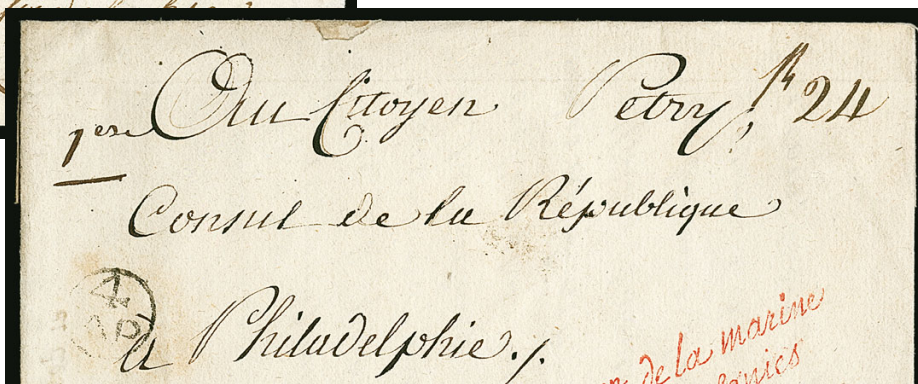 1ere Au Citoyen Petry, 24
Consul de la République
4
AP
a Philadelphie ./.
de la marine